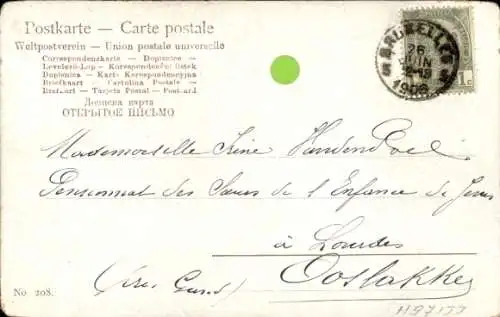 Postkarte — Carte postale
Weltpostverein — Union postale universelle
Correspondenzkarte — Dopisnice —
Levelező-Lap — Korespondenční lístek
Dopisnica — Karta Korespondencyjna
Briefkaart — Cartolina Postale —
Brefkort — Tarjeta Postal — Post-card
Дописна карта
ОТКРЫТОЕ ПИСЬМО
BRUXELLES
26
JUIN
1906
1c
Mademoiselle Irène
Pensionnat des Sœurs de l'Enfance de Jésus
à Lourdes
Oostakker
No. 208.